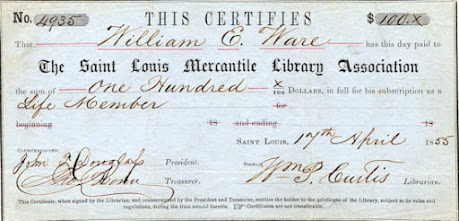 No. 4935 THIS CERTIFIES $ 100.X
That William E. Ware has this day paid to
The Saint Louis Mercantile Library Association
the sum of One Hundred x/100 Dollars, in full for his subscription as a
Life Member for
beginning 18 and ending 18
Saint Louis, 17th April 1855
COUNTERSIGNED,
John T. Douglass President. SIGNED, Wm P. Curtis
Treasurer. Librarian.
This Certificate, when signed by the Librarian, and countersigned by the President and Treasurer, entitles the holder to the privileges of the Library, subject to rules and
regulations, during the time named therein. Certificates are not transferable.